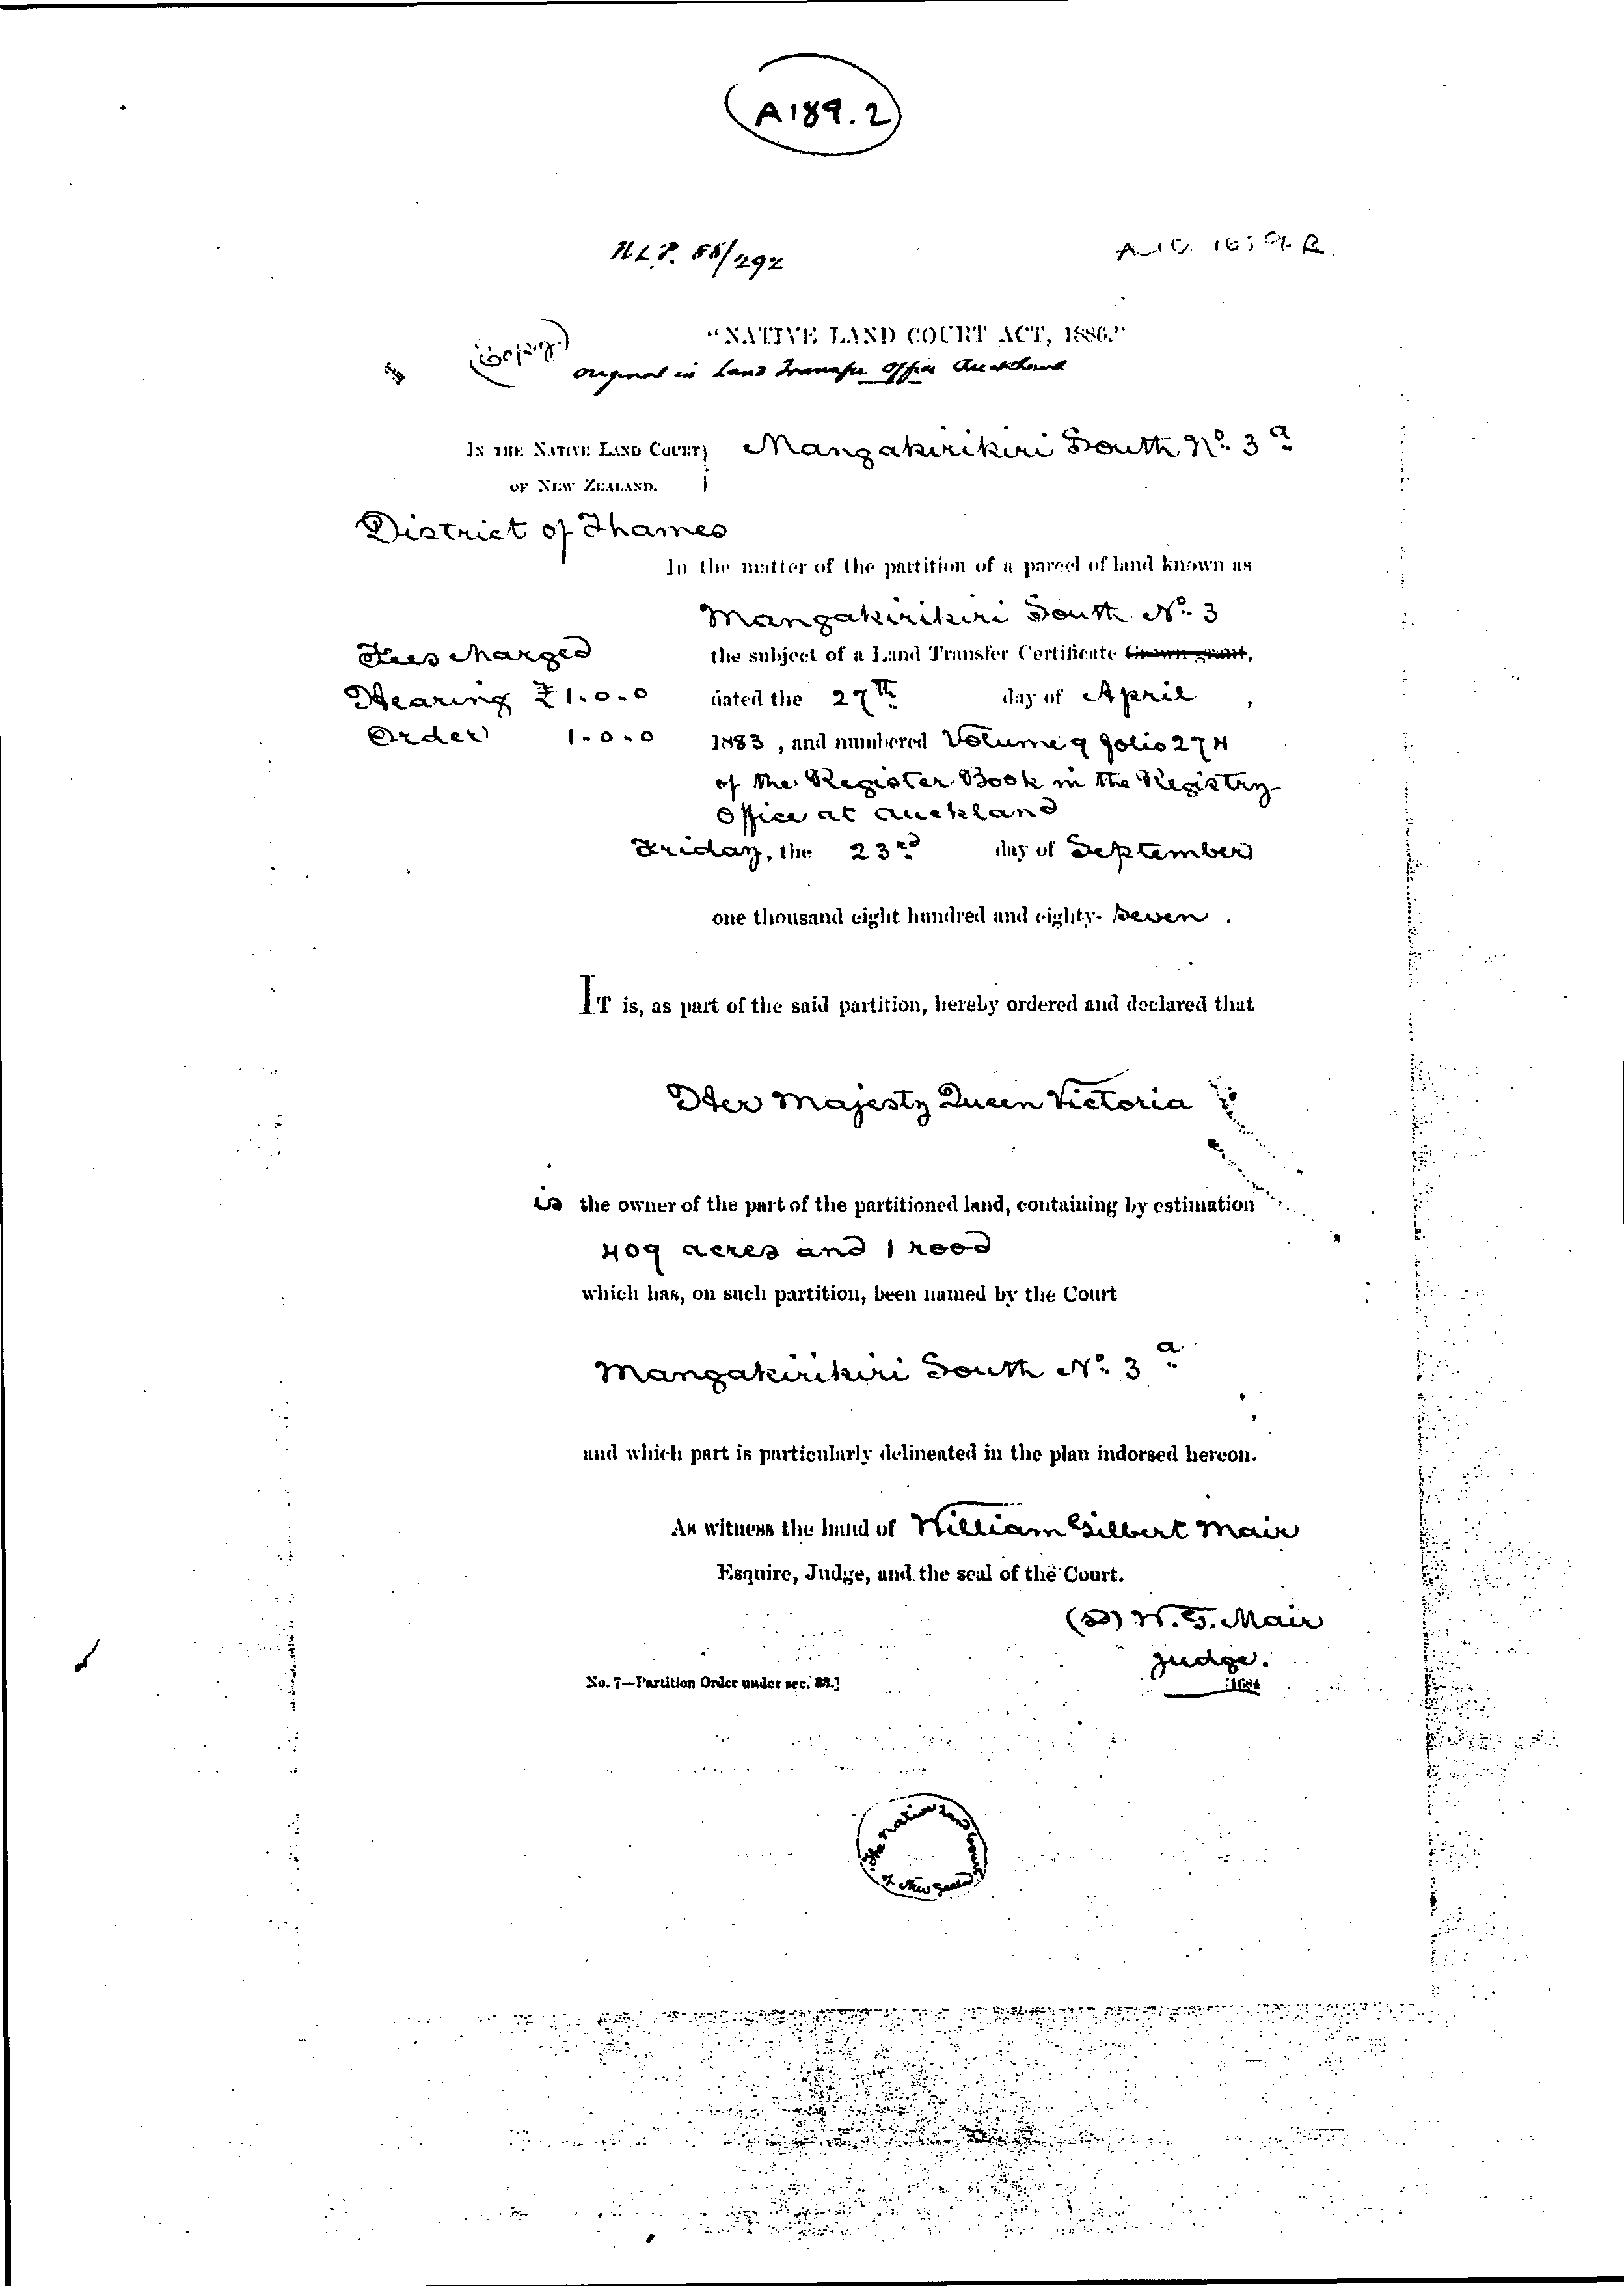 A189.2
N.L.P. 88/292
"NATIVE LAND COURT ACT, 1886."
(Copy)
Original in Land Transfer Office Auckland
IN THE NATIVE LAND COURT
OF NEW ZEALAND.
Mangakirikiri South No. 3a
District of Thames
In the matter of the partition of a parcel of land known as
Mangakirikiri South No. 3
Fees charged
the subject of a Land Transfer Certificate Crown grant,
Hearing £1.0.0
dated the 27th day of April,
Order 1.0.0
1883, and numbered Volume 9 folio 274
of the Register Book in the Registry
Office at Auckland
Friday, the 23rd day of September
one thousand eight hundred and eighty-seven.
IT is, as part of the said partition, hereby ordered and declared that
Her Majesty Queen Victoria
is the owner of the part of the partitioned land, containing by estimation
409 acres and 1 rood
which has, on such partition, been named by the Court
Mangakirikiri South No. 3a
and which part is particularly delineated in the plan indorsed hereon.
As witness the hand of William Gilbert Mair
Esquire, Judge, and the seal of the Court.
(sd) W. G. Mair
Judge.
No. 7—Partition Order under sec. 88.]
The Native Land Court
of New Zealand